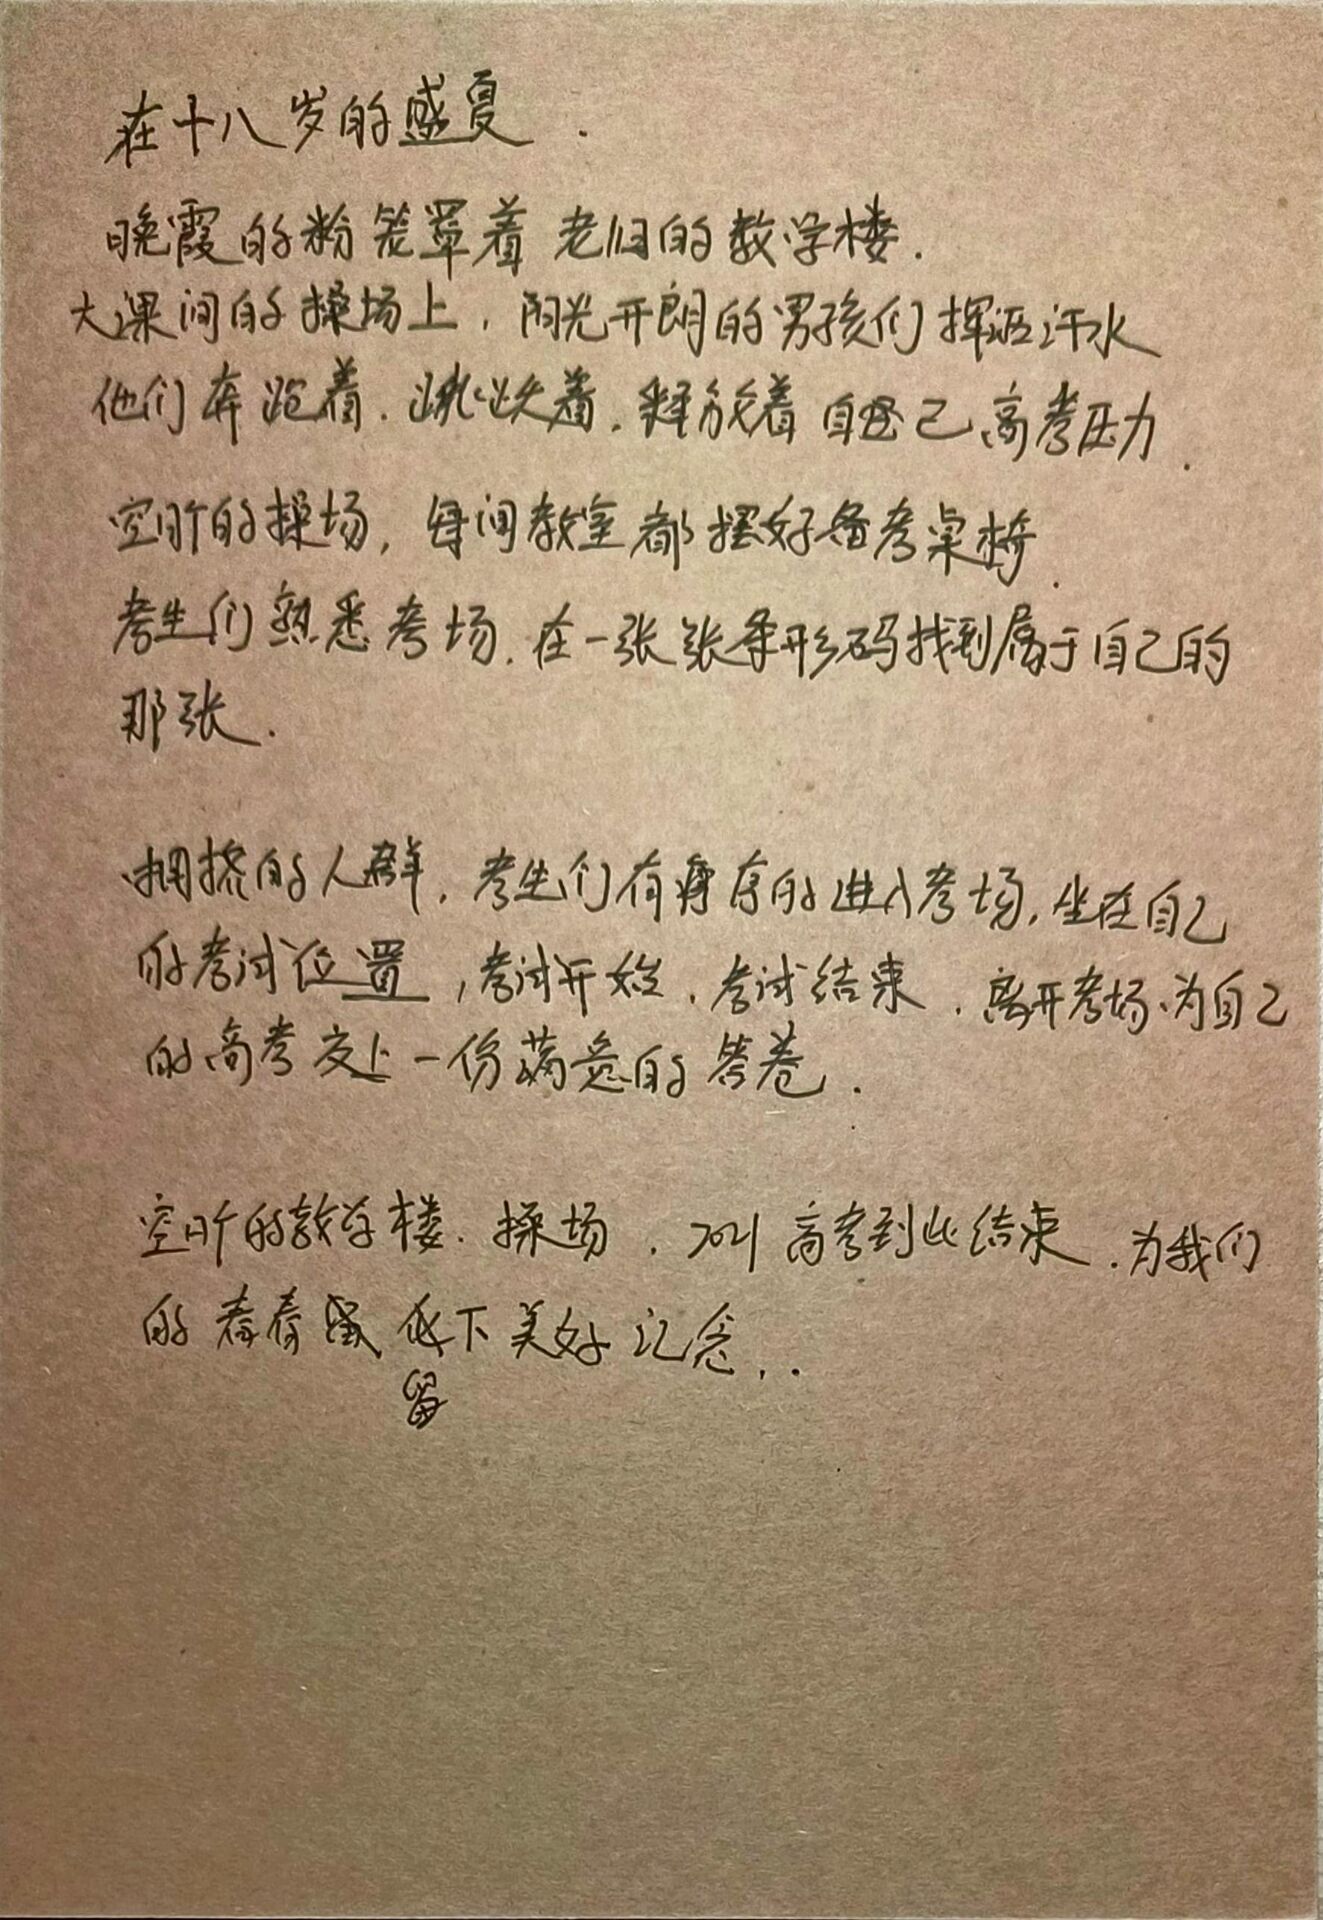 在十八岁的盛夏.
晚霞的粉笼罩着老旧的教学楼.
大课间的操场上,阳光开朗的男孩们挥洒汗水
他们奔跑着.跳跃着.释放着自己高考压力.
空旷的操场,每间教室都摆好备考桌椅.
考生们熟悉考场.在一张张条形码找到属于自己的
那张.
拥挤的人群,考生们有序的进入考场,坐在自己
的考试位置,考试开始.考试结束.离开考场、为自己
的高考交上一份满意的答卷.
空旷的教学楼.操场.2021高考到此结束.为我们
的青春 下美好记念..
留